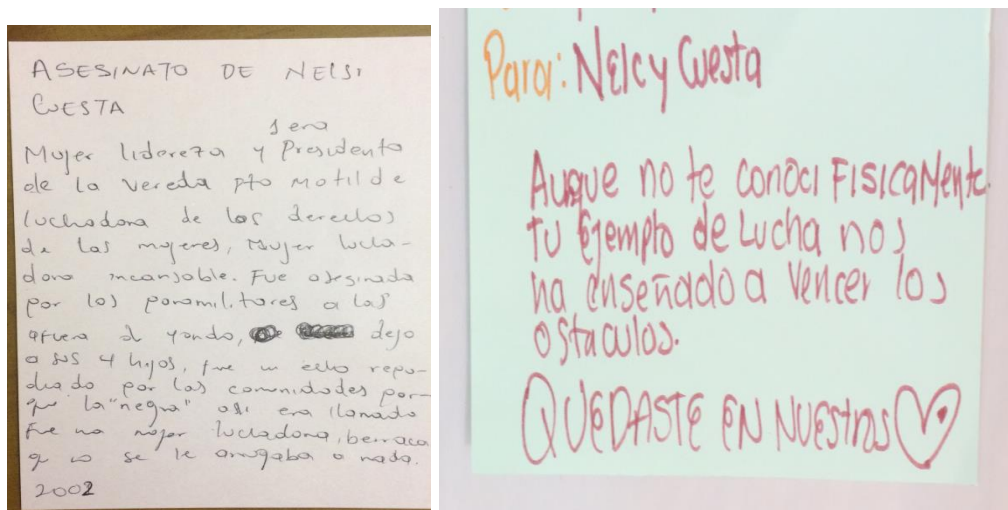 ASESINATO DE NELSI
CUESTA
1era
Mujer lidereza y Presidenta
de la vereda pto Matilde
luchadora de los derechos
de las mujeres, Mujer lucha-
dora incansable. Fue asesinada
por los paramilitares a las
afuera d yondo, dejo
a sus 4 hijos, fue un echo repu-
diado por las comunidades por-
que la "negra" asi era llamada
Fue na mujer luchadora, berraca
q no se le arrugaba a nada.
2002
Para: Nelcy Cuesta
Auque no te conoci FISICAMente.
tu Ejemplo de Lucha nos
ha enseñado a vencer los
ostaculos.
QUEDASTE EN NUESTROS